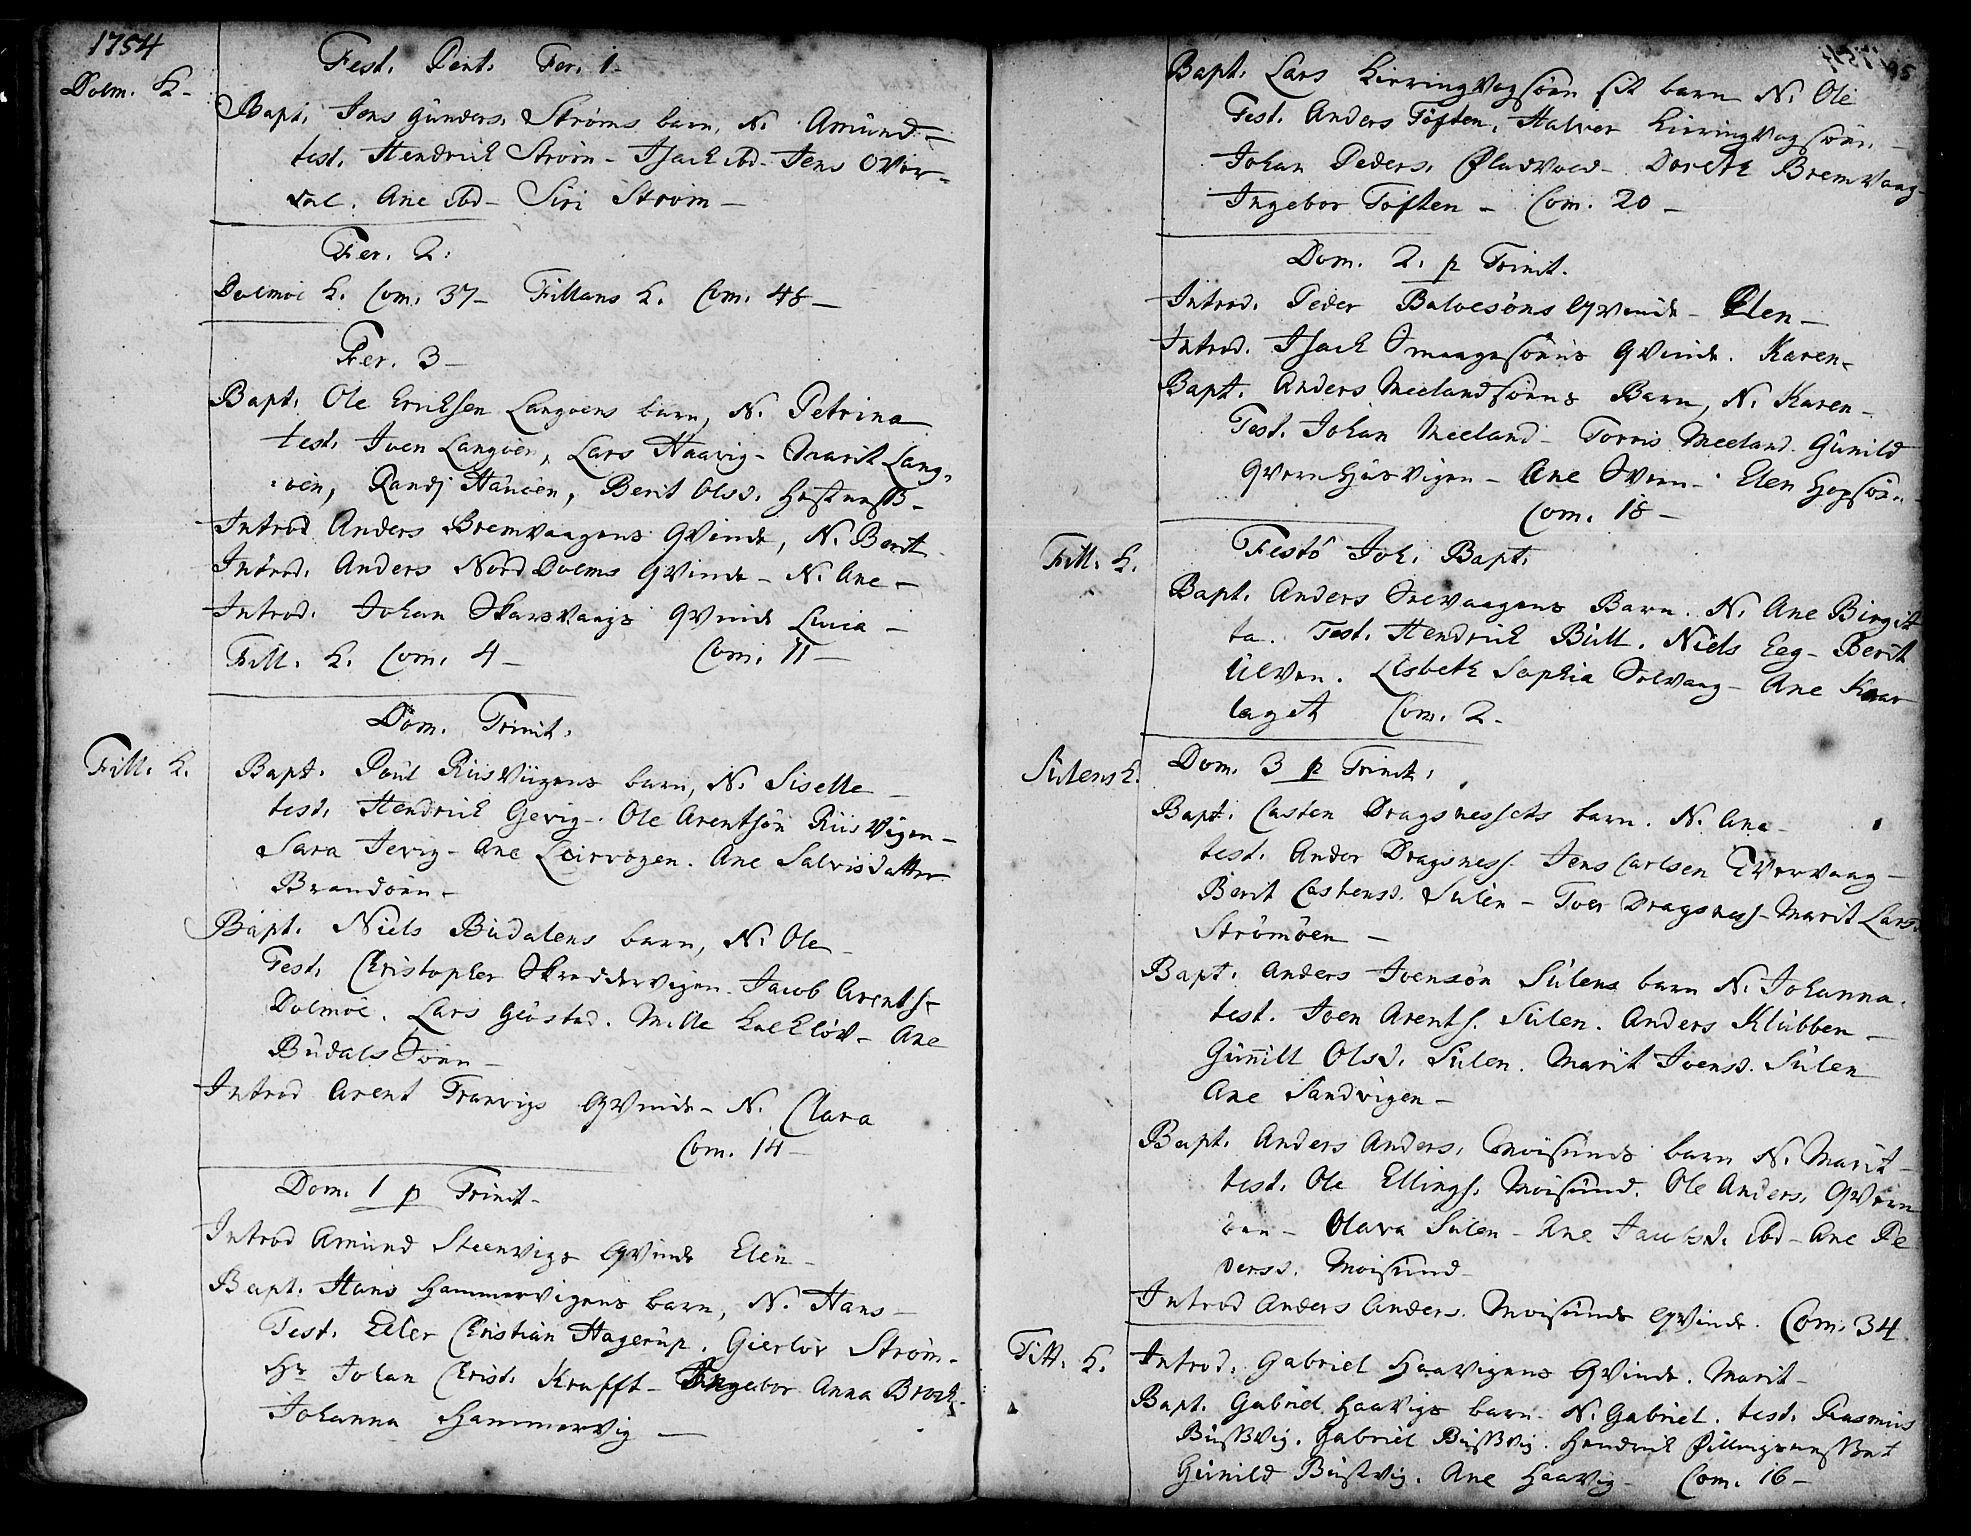 1754
Dolm. K.
Fest. Pent. Fer. 1.
Bapt. Jens Gunders. Strøms barn, N. Amund
test. Hendrick Strøm - Isack ibd. Jens Over-
dal. Ane ibd - Siri Strøm -
Fer. 2.
Dolmøe K. Com. 37 - Fillans K. Com. 48 -
Fer. 3 -
Bapt. Ole Ericksen Langøens barn, N. Petrina
test. Iven Langøen, Lars Haavig - Marit Lang-
øen, Randj Hauøen, Berit Olsd. Hestness -
Introd Anders Bremvaagens Qvinde, N. Berit
Introd. Anders Nord Dolms Qvinde - N. Ane -
Introd. Johan Skarsvaags Qvinde Lucia -
Fill. K. Com. 4 - Com. 11 -
Dom. Trinit.
Fill. K.
Bapt. Poul Riisviigens barn, N. Siselle -
test. Hendrick Gevig - Ole Arentsøn Riisvigen -
Sara Jevig - Ane Leirvogen. Ane Salvisdatter
Brandøen -
Bapt. Niels Budalens barn, N. Ole -
Test. Christopher Skreddervigen - Jacob Arents.
Dolmøe. Lars Giøstad. Mille Kalkløv - Ane
Budals Søen -
Introd Arent Tranvigs Qvinde - N. Clara
Com. 14 -
Dom. 1 p Trinit -
Introd Amund Steenvigs Qvinde Elen -
Bapt. Hans Hammervigens barn, N. Hans -
Test. Eiler Christian Hagerup. Giertøv Strøm -
Hr. Johan Christ. Krafft - Ingebor Anna Brock -
Johanna Hammervig -
95
Bapt. Lars Kirringvagsøen sit barn N. Ole
Test. Anders Toften, Halver Kirringvagsøen -
Johan Peders. Øladvoed - Doreth Bremvaag -
Ingebor Toften - Com. 20 -
Dom. 2. p Trinit.
Introd. Peder Balvesøns Qvinde - Elen -
Introd. Isack Smaagesøens Qvinde. Karen -
Bapt. Anders Meelandsøens Barn, N. Karen -
Test. Johan Meeland - Torris Meeland. Gunild
Qvernhusvigen - Ane Svern - Elen Hopsøen -
Com. 18 -
Fill. K.
Festo Joh. Bapt.
Bapt. Anders Solvaagens Barn. N. Ane Birgit
ta. Test. Hendrick Bull. Niels Eeg - Berit
Ulven. Lisbeth Sophia Solvaag - Ane Knar
laget Com. 2 -
Sulens K.
Dom. 3 p Trinit.
Bapt. Casten Dragsnessets barn. N. Ane -
test. Ander Dragsness. Jens Carlsen Tvervaag -
Berit Castensd. Sulen - Toer Dragsness - Marit Larsd
Strømøen -
Bapt. Anders Ivensøn Sulens barn N. Johanna.
test. Iven Arents. Sulen. Anders Klubben -
Gunnill Olsd. Sulen. Marit Ivensd. Sulen
Ane Sandvigen -
Bapt. Anders Anders. Moisunds barn N. Marit -
test. Ole Ellings. Moisund. Ole Anders. Qvern
øen - Olava Sulen - Ane Jacobsd. ibd - Ane Pe
dersd. Moisund -
Introd Anders Anders. Moisunds Qvinde. Com. 34
Fill. K.
Introd. Gabriel Haavigens Qvinde. Marit -
Bapt. Gabriel Haavigs barn - N. Gabriel. test. Rasmus
Bussvig. Gabriel Bussvig. Hendrick Fillingsnesset
Gunild Bussvig. Ane Haavig - Com. 16 -